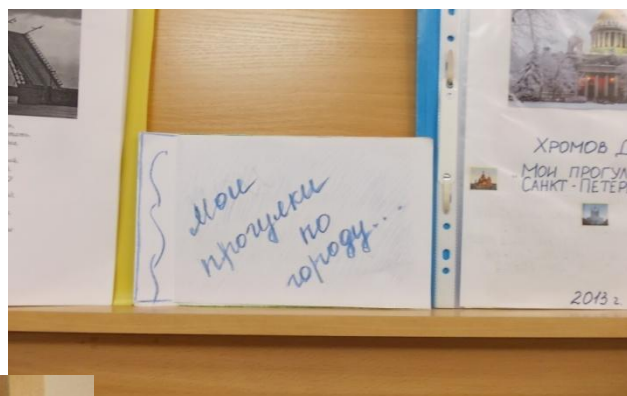 Мои
прогулки
по
городу...
ХРОМОВ Д
МОИ ПРОГУЛ
САНКТ-ПЕТЕР
2013 г